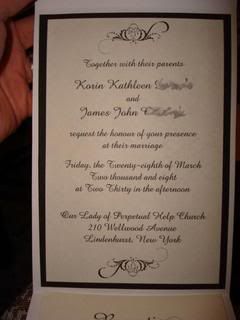 Together with their parents
Korin Kathleen
and
James John
request the honour of your presence
at their marriage
Friday, the Twenty-eighth of March
Two thousand and eight
at Two Thirty in the afternoon
Our Lady of Perpetual Help Church
210 Wellwood Avenue
Lindenhurst, New York